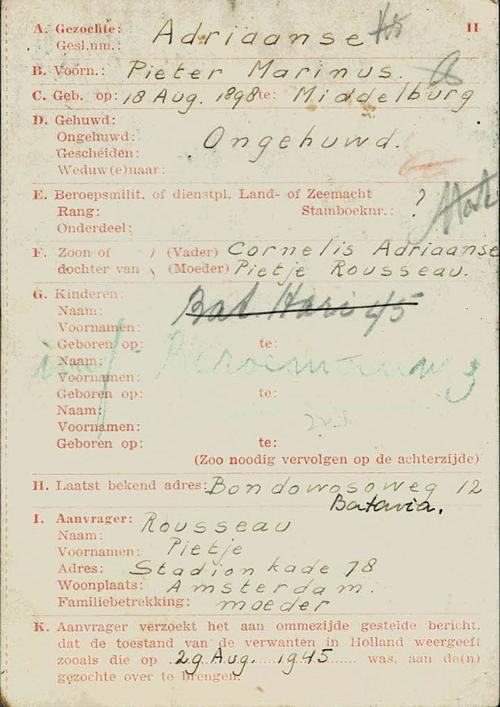 A. Gezochte: Adriaanse II
Gesl.nm.:
B. Voorn.: Pieter Marinus.
C. Geb. op: 18 Aug. 1898 te: Middelburg
D. Gehuwd:
Ongehuwd: Ongehuwd.
Gescheiden:
Weduw(e)naar:
E. Beroepsmilit. of dienstpl. Land- of Zeemacht
Rang: Stamboeknr.: ?
Onderdeel:
F. Zoon of ) (Vader) Cornelis Adriaanse
dochter van ) (Moeder) Pietje Rousseau.
G. Kinderen:
Naam: Bat Hari 45
Voornamen:
Geboren op: te:
Naam:
Voornamen:
Geboren op: te:
Naam:
Voornamen:
Geboren op: te:
(Zoo noodig vervolgen op de achterzijde)
H. Laatst bekend adres: Bondowosoweg 12
Batavia.
I. Aanvrager: Rousseau
Naam:
Voornamen: Pietje
Adres: Stadionkade 78
Woonplaats: Amsterdam.
Familiebetrekking: moeder
K. Aanvrager verzoekt het aan ommezijde gestelde bericht,
dat de toestand van de verwanten in Holland weergeeft
zooals die op 29 Aug. 1945 was, aan de(n)
gezochte over te brengen.